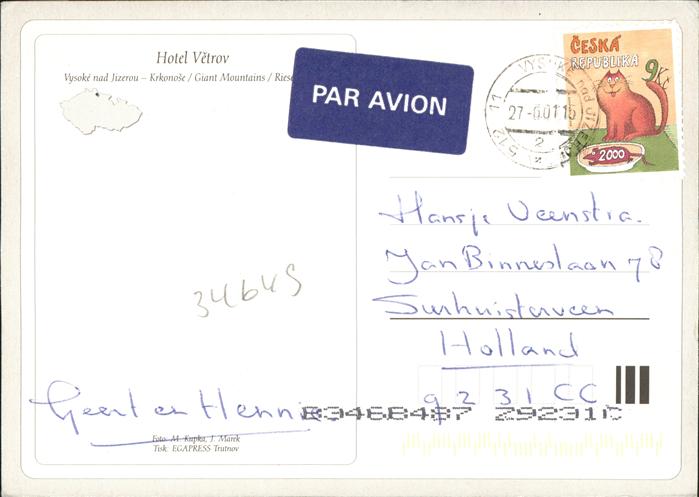 Hotel Větrov
Vysoké nad Jizerou – Krkonoše / Giant Mountains /
PAR AVION
ČESKÁ
REPUBLIKA
9Kč
2000
512 11
27-6.01 15
2
Hansje Veenstra.
Jan Binneslaan 78
Surhuisterveen
Holland
9231CC
34649
Geert en Hennie
83468487 Z9231C
Foto: M. Kupka, J. Marek
Tisk: EGAPRESS Trutnov